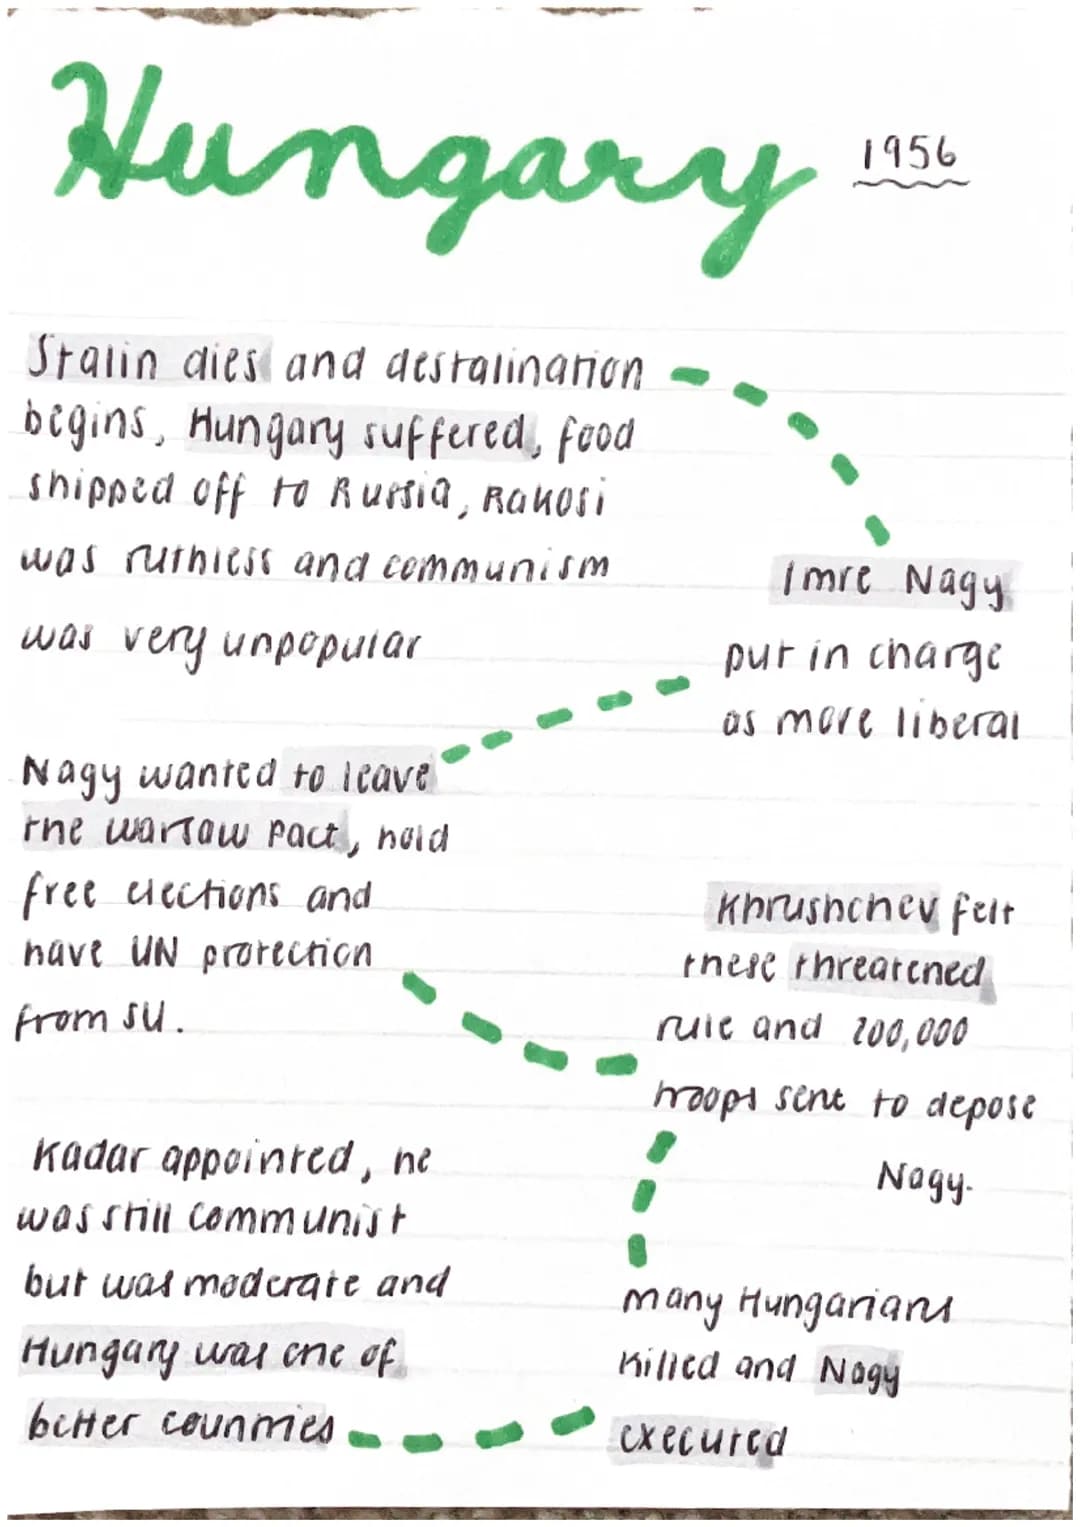 Hungary 1956
Stalin dies and destalination
begins, Hungary suffered, food
shipped off to Russia, Rakosi
was ruthless and communism
was very unpopular
Imre Nagy
put in charge
as more liberal
Nagy wanted to leave
the warsaw pact, hold
free elections and
have UN protection
from SU.
Khrushchev felt
these threatened
rule and 200,000
troops sent to depose
Nagy.
many Hungarians
killed and Nagy
executed
Kadar appointed, he
was still communist
but was moderate and
Hungary was one of
better countries